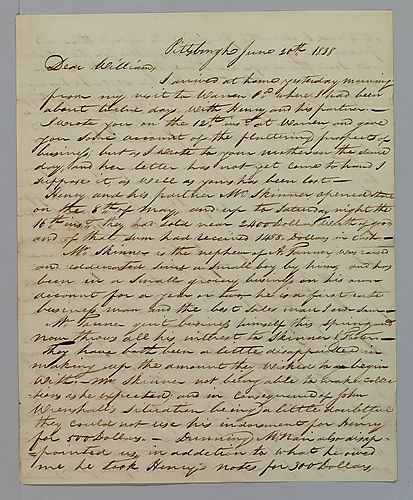 Pittsburgh June 20th 1838
Dear William,
I arrived at home yesterday morning
from my visit to Warren Pa where I had been
about twelve days with Henry and his partner —
I wrote you on the 12th inst at Warren and gave
you some account of the flattering prospects of
business, but as I wrote to your mother on the same
day and her letter has not yet come to hand I
suppose it as well as yours has been lost —
Henry and his partner Mr Skinner opened store
on the 8th of May, and up to Saturday night the
16th inst they had sold near 2400 Dollars worth of goods
and of that sum had received 1400 Dollars in Cash —
Mr Skinner is the nephew of A Tanner was raised
and educated since a small boy by him, and has
been in a small grocery business on his own
account for a year or two he is a first rate
business man and the best sales man I ever saw —
Mr Tanner quit business himself this spring and
now throws all his interest to Skinner &
they have both been a little disappointed in
making up the amount they wished to begin
with. Mr Skinner not being able to make collec
tions as he expected, and in consequence of John
Wrenshall's situation being a little doubtful
they could not use his indorsment for Henry
for 500 Dollars — Dunning McNair also disap-
-pointed us, in addition to what he owed
me he took Henry's notes for 300 Dollars